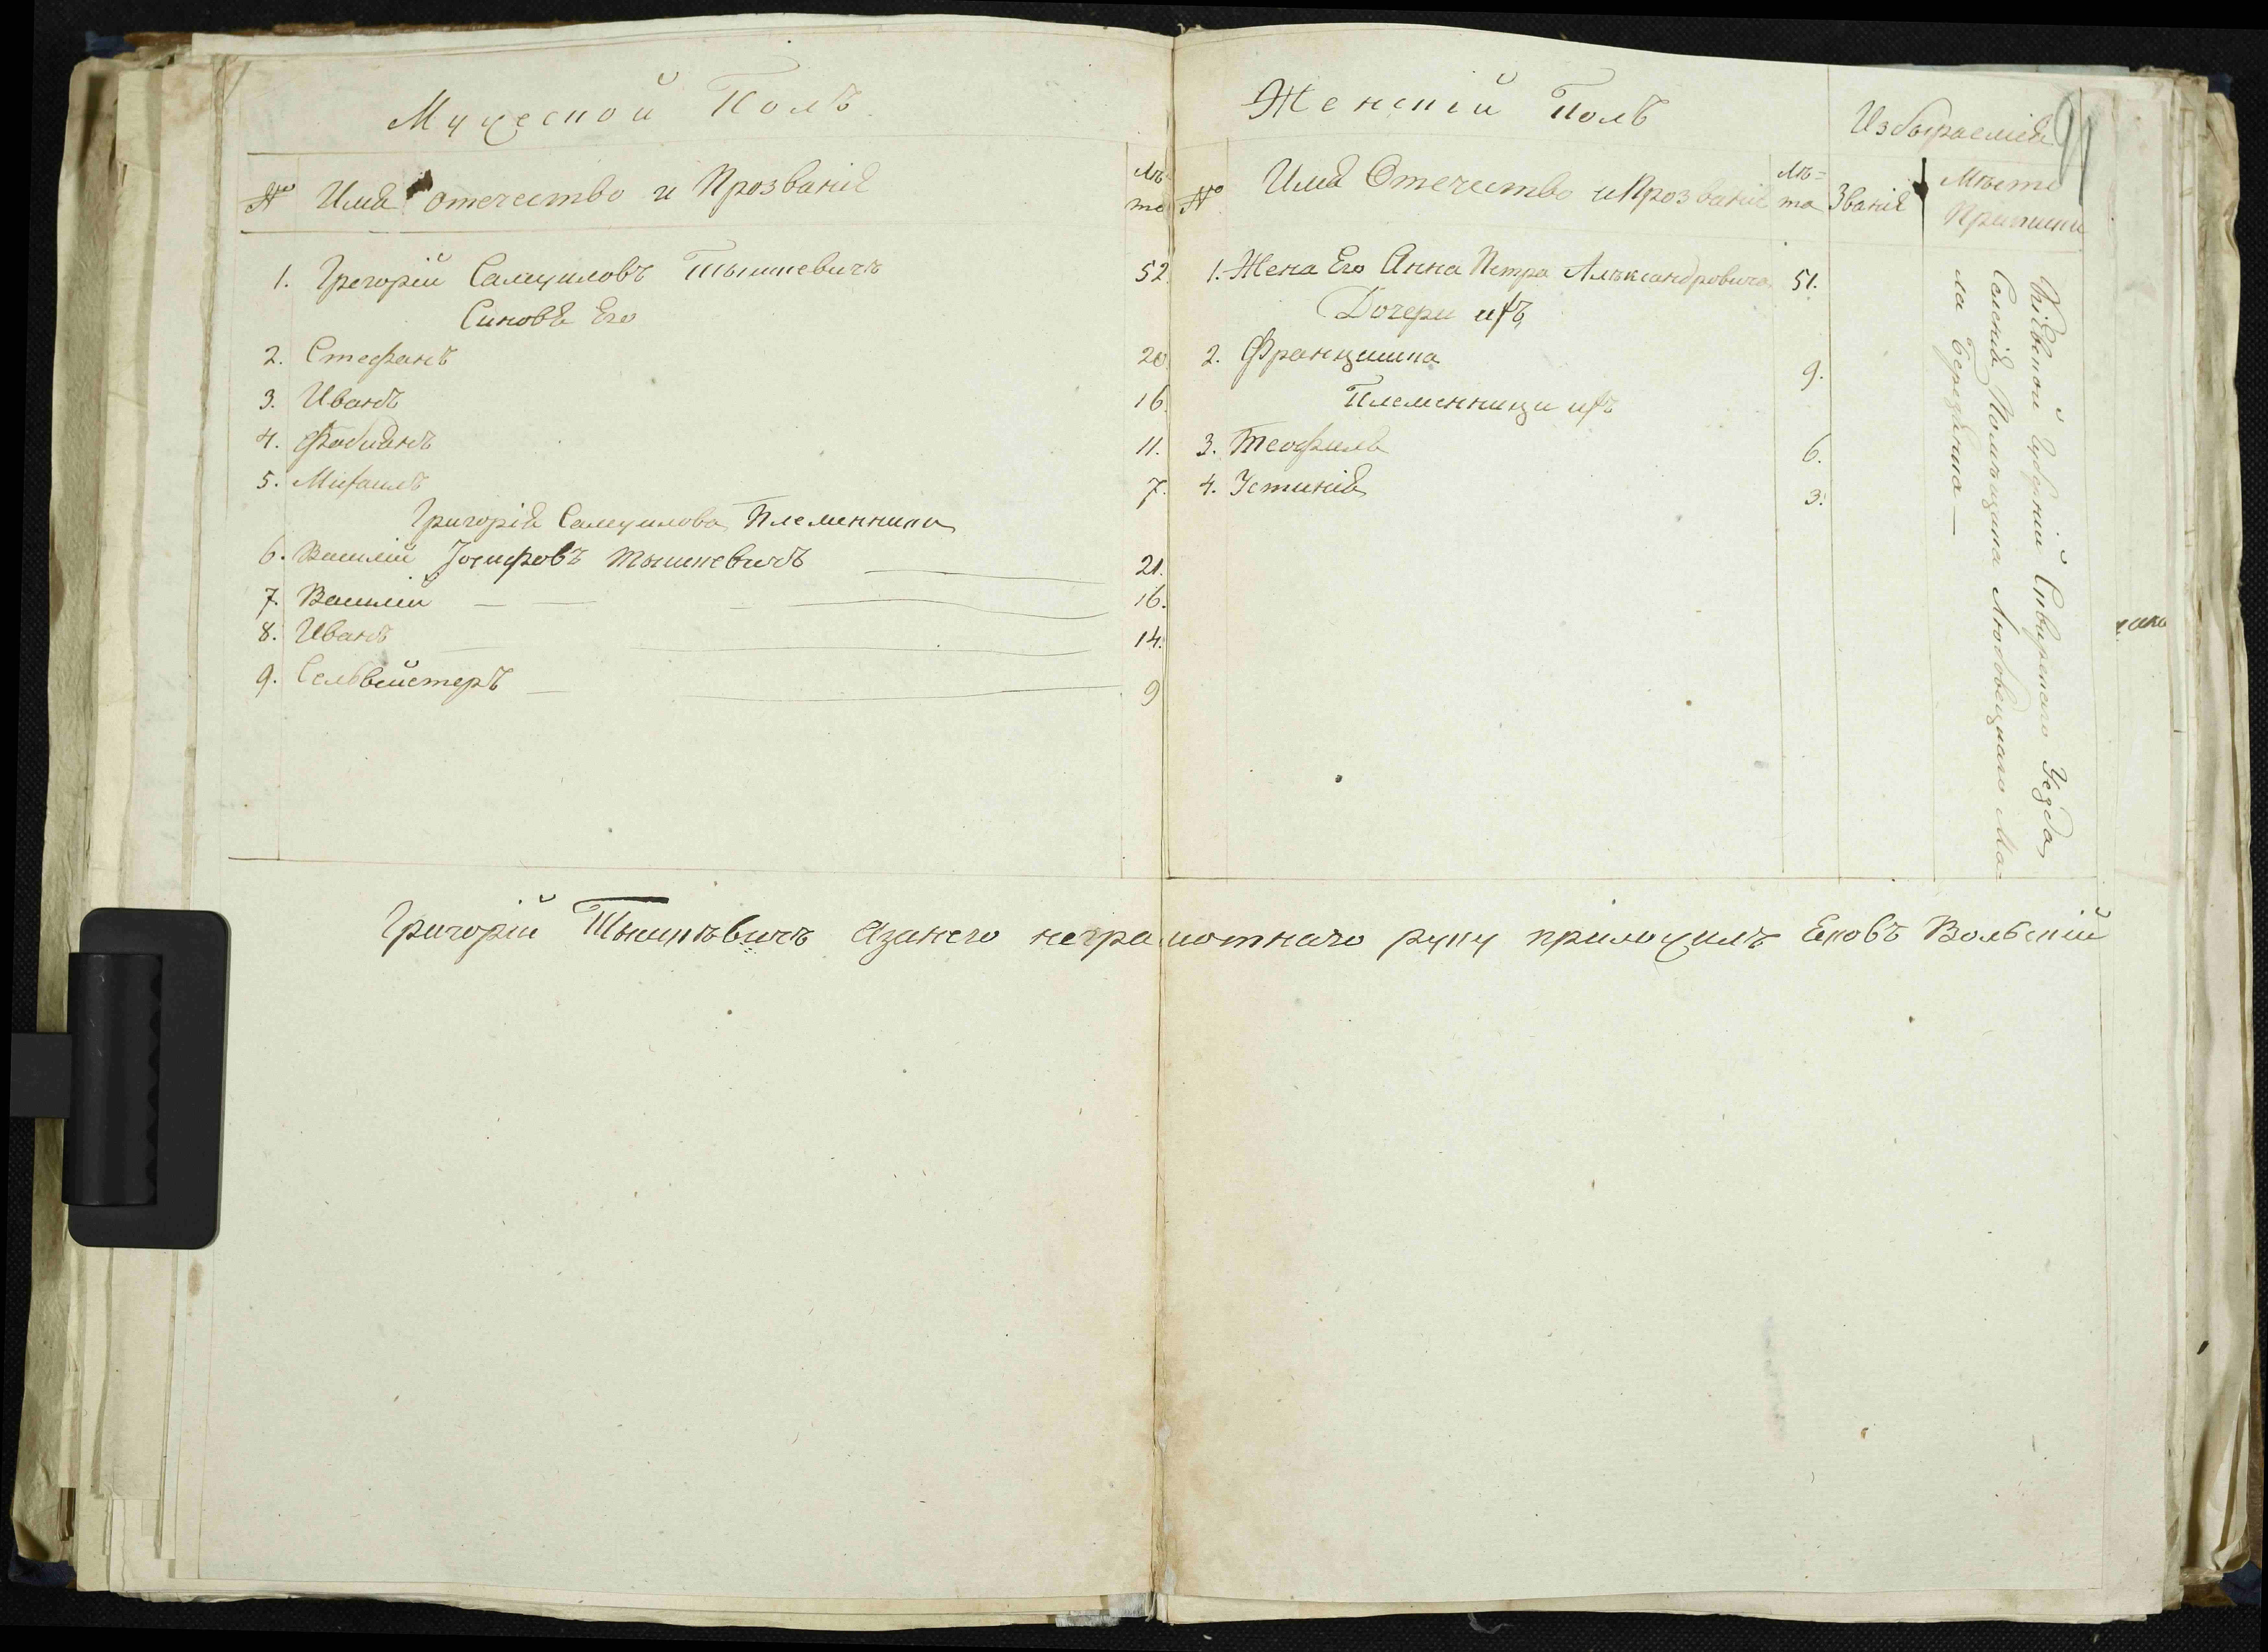 Мужеской Полъ
№ Имя отечество и Прозваніе
Лѣ-
та
1. Григорій Самуиловъ Тышкевичъ 52.
Синовя Его
2. Стефанъ 20.
3. Иванъ 16.
4. Фабиянъ 11.
5. Михаилъ 7.
Григорія Самуилова Племенники
6. Василій Іосифовъ Тышкевичъ 21.
7. Василій 16.
8. Иванъ 14.
9. Селвейстеръ 9
Женскій Полъ
№ Имя Отечество и Прозваніе
Лѣ=
та
Избыраемія
Званія
Мѣсто
Приписки
1. Жена Его Анна Петра Алѣксандровича 51.
Дочери ихъ
2. Францишка 9.
Племенници ихъ
3. Теофиля 6.
4. Устинія 3.
Кіевской Губерніи Сквирского Уезда
Селенія Помѣщика Любовецкаго Ма-
ла Березянка —
Григорій Тышкѣвичъ Язанего неграмотнаго руку приложилъ Яковъ Вольскій